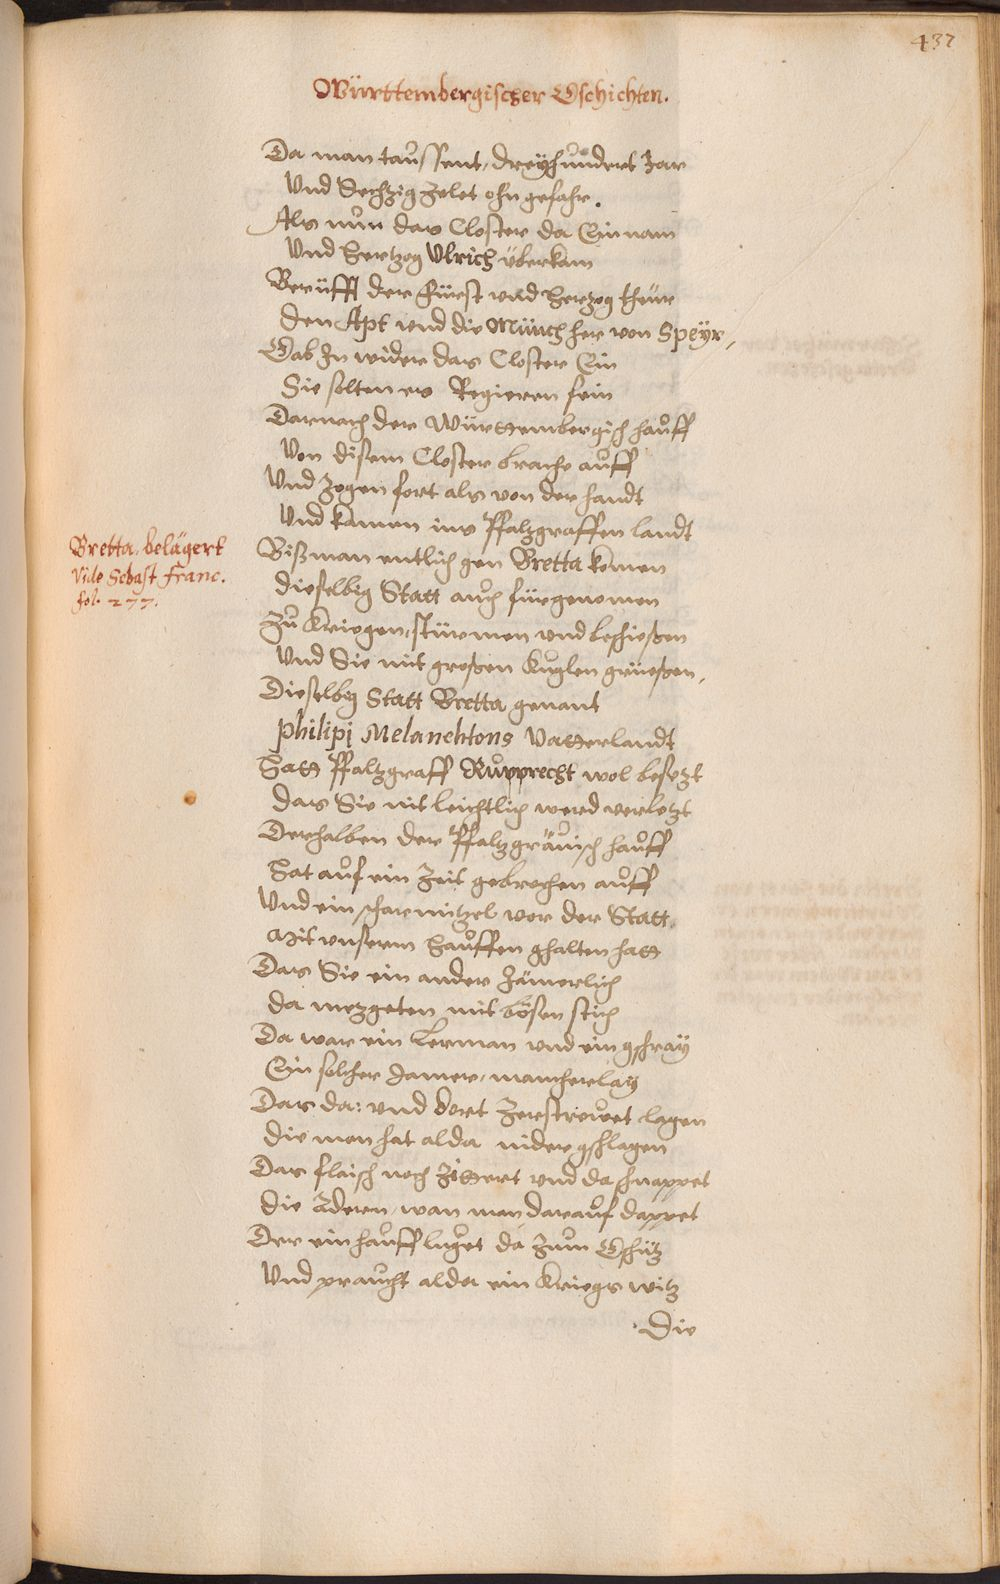 437
Württembergischer Gschichten.
Da man taussent, dreyhundert Jar
Und Sechzig zelet ohn gefahr.
Als nun das Closter da Einnam
Und Hertzog Ulrich überkam
Berüfft der Fürst und Herzog theur
Den Apt und die Münch her von Speyr,
Gab In wider das Closter Ein
Sie solten es Regieren fein
Darnach der Württembergisch hauff
Von disem Closter brache auff
Und Zogen fort als von der handt
Und kamen ins Pfaltzgraffen landt
Bretta. belägert
Vide Sebast Franc.
fol. 277.
Biß man entlich gen Bretta komen
dieselbig Statt auch fürgenomen
Zu Kriegen, stürmen und beschießen
Und Sie mit großen Kuglen grüeßen,
Dieselbig Statt Bretta genant
Philipi Melanchtons Vatterlandt
Hatt Pfaltzgraff Rupprecht wol besezt
das Sie nit leichtlich werd verletzt
Derhalben der Pfaltzgrävisch hauff
Hat auf ein Zeit gebrochen auff
Und ein scharmützel vor der Statt
Mit unserem Hauffen ghalten hatt
Das Sie ein ander Jämerlich
da mezgeten mit bösen stich
Da war ein Lerman und ein gschray
Ein solcher Jamer, mancherlay
Das da: und dort Zerströwet lagen
die man hat alda nider gschlagen
Das flaisch noch Zittert und da schnappet
die Äderen, wan man darauf dappet
Der ein hauff luget da zum Gschütz
Und praucht alda ein Kriegs witz
Die